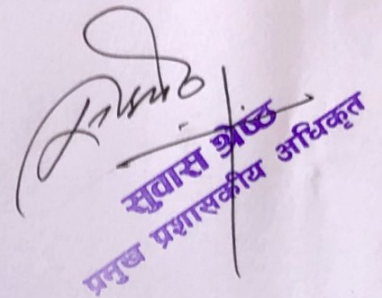 सुवास श्रेष्ठ
प्रमुख प्रशासकीय अधिकृत